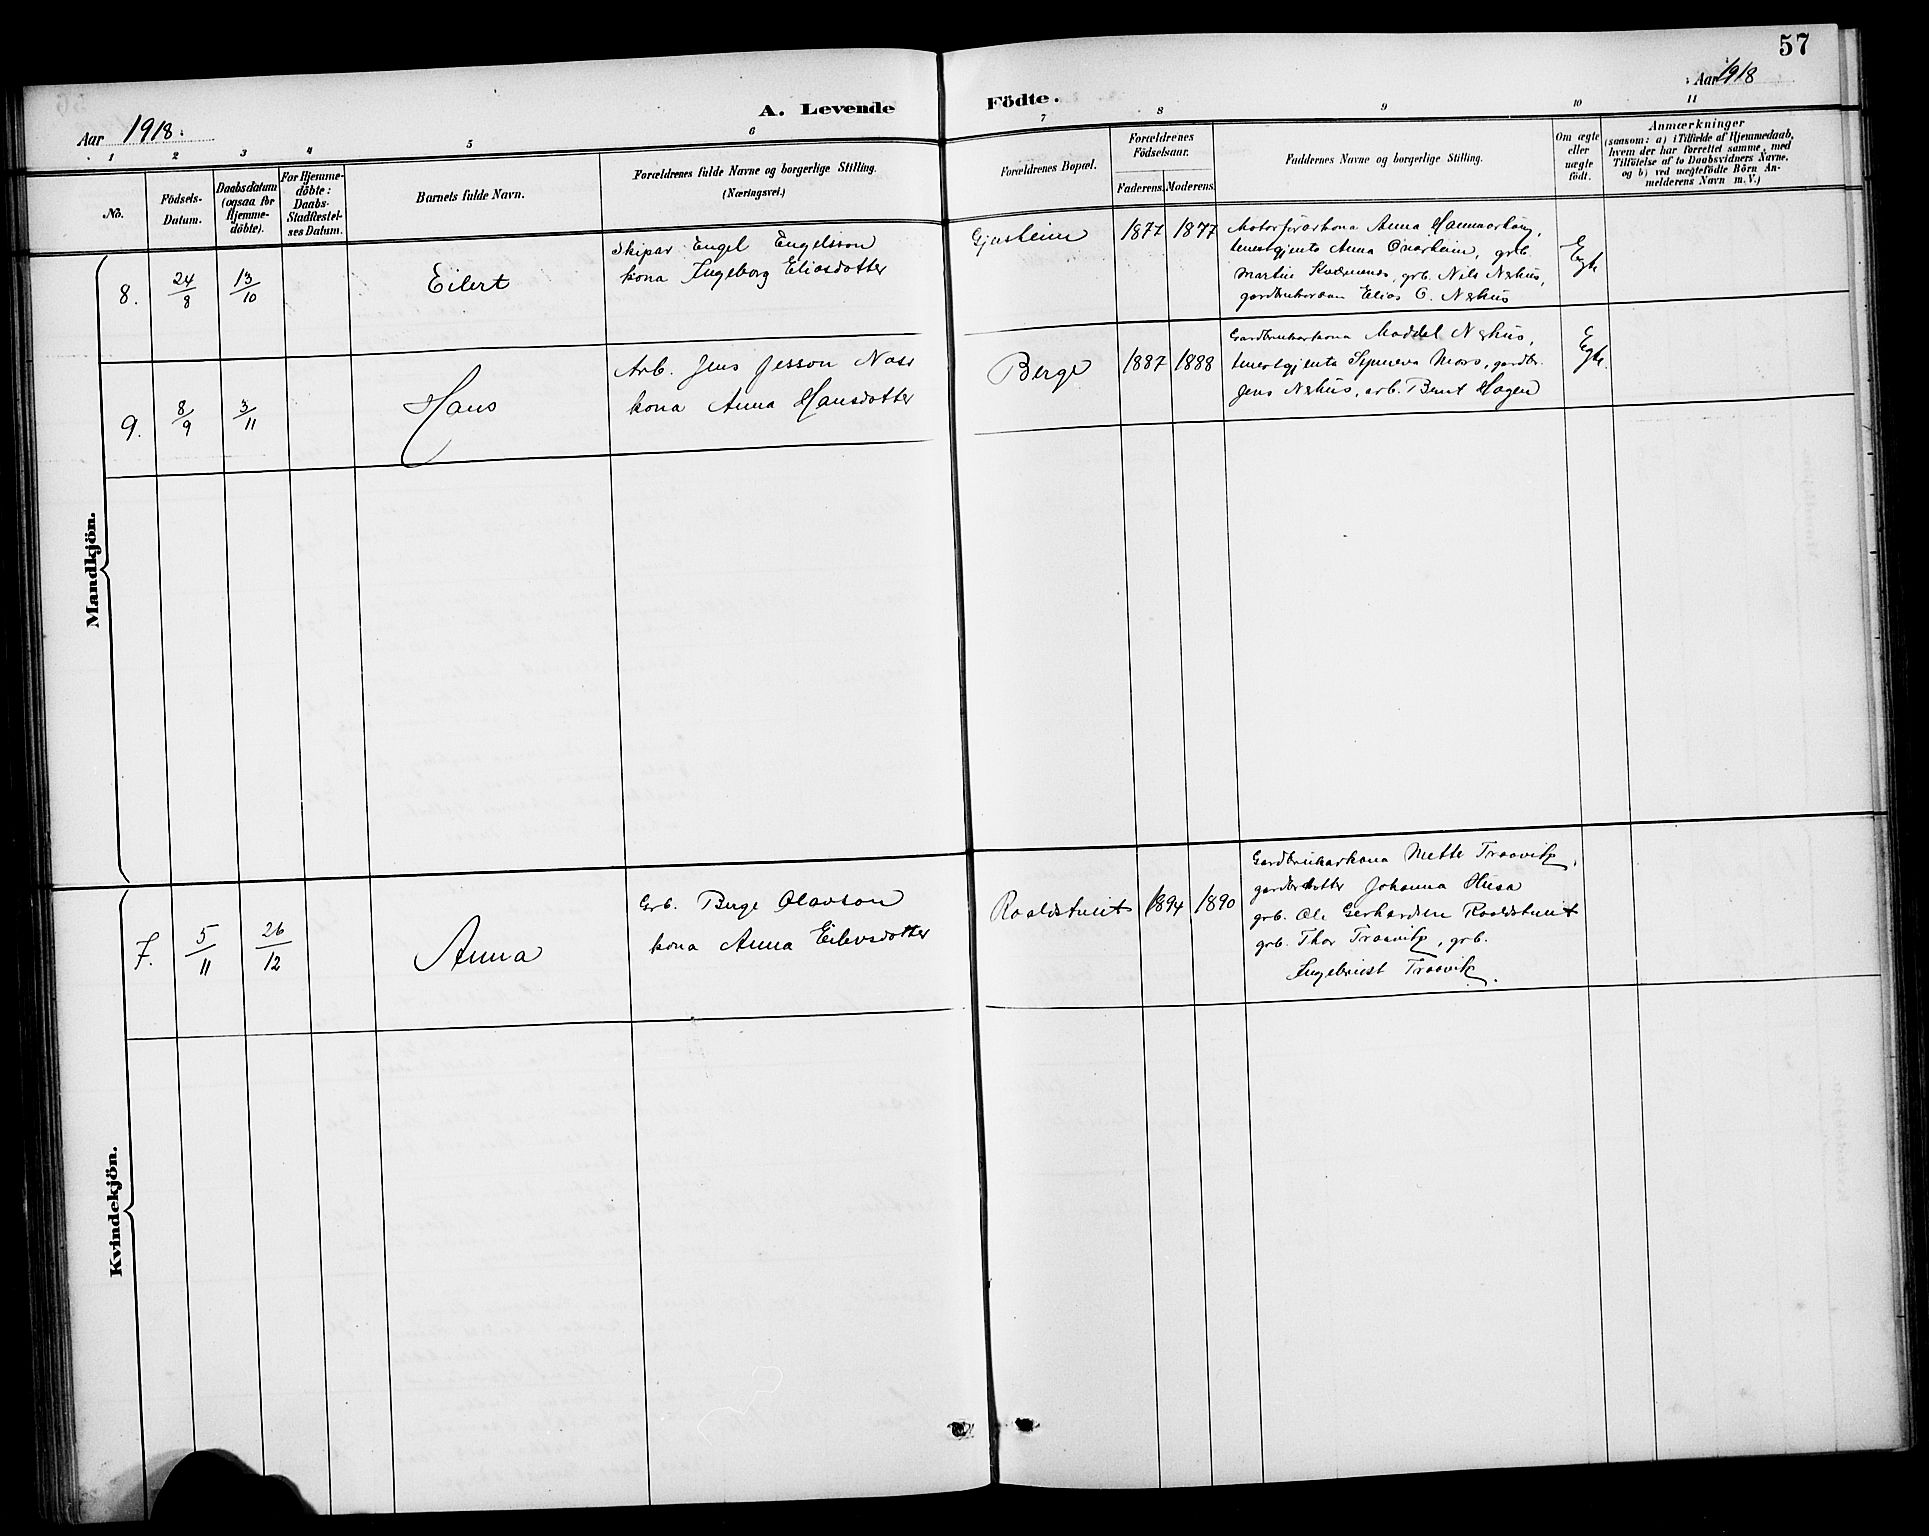 57
Aar 1918.
A. Levende Födte.
Aar 1918
1 2 3 4 5 6 7 8 9 10 11
No.
Födsels-
Datum.
Daabsdatum
(ogsaa for
Hjemme-
döbte).
For Hjemme-
döbte:
Daabs-
Stadfæstel-
ses Datum.
Barnets fulde Navn.
Forældrenes fulde Navne og borgerlige Stilling.
(Næringsvei.)
Forældrenes Bopæl.
Forældrenes
Födselsaar.
Faderens. Moderens.
Faddernes Navne og borgerlige Stilling.
Om ægte
eller
uægte
födt.
Anmærkninger
(saasom: a) i Tilfælde af Hjemmedaab,
hvem der har forrettet samme, med
Tilföielse af to Daabsvidners Navne.
og b) ved uægtefödte Börn An-
melderens Navn m. V.)
Mandkjön.
8. 24/8 13/10 Eilert
Skipar Engel Engelsson
kona Ingeborg Eliasdotter
1877 1877
Motorførarkona Anna
tenestgjenta Anna Onarheim, grb.
Martin Kvernenes, grb. Nils Nerhus,
gardbrukarson Elias O. Nerhus
Egte
9. 8/9 3/11 Hans
Arb. Jens Jesson Nass
kona Anna Hansdotter
Berge 1887 1888
Gardbrukarkona Maddel Nerhus,
tenestgjenta Synneva Mors, gardbr.
Jens Nerhus, arb. Bent Hagen
Egte.
Kvindekjön.
7. 5/11 26/12 Anna
Grb. Berge Olavson
kona Anna Eilevsdotter
Roaldstveit 1894 1890
Gardbrukarkona Mette Traavik,
gardbr.dotter Johanna Husa
grb. Ole Gerhardsen Roaldstveit
grb. Thor Traavik, grb.
Ingebrigt Traavik.